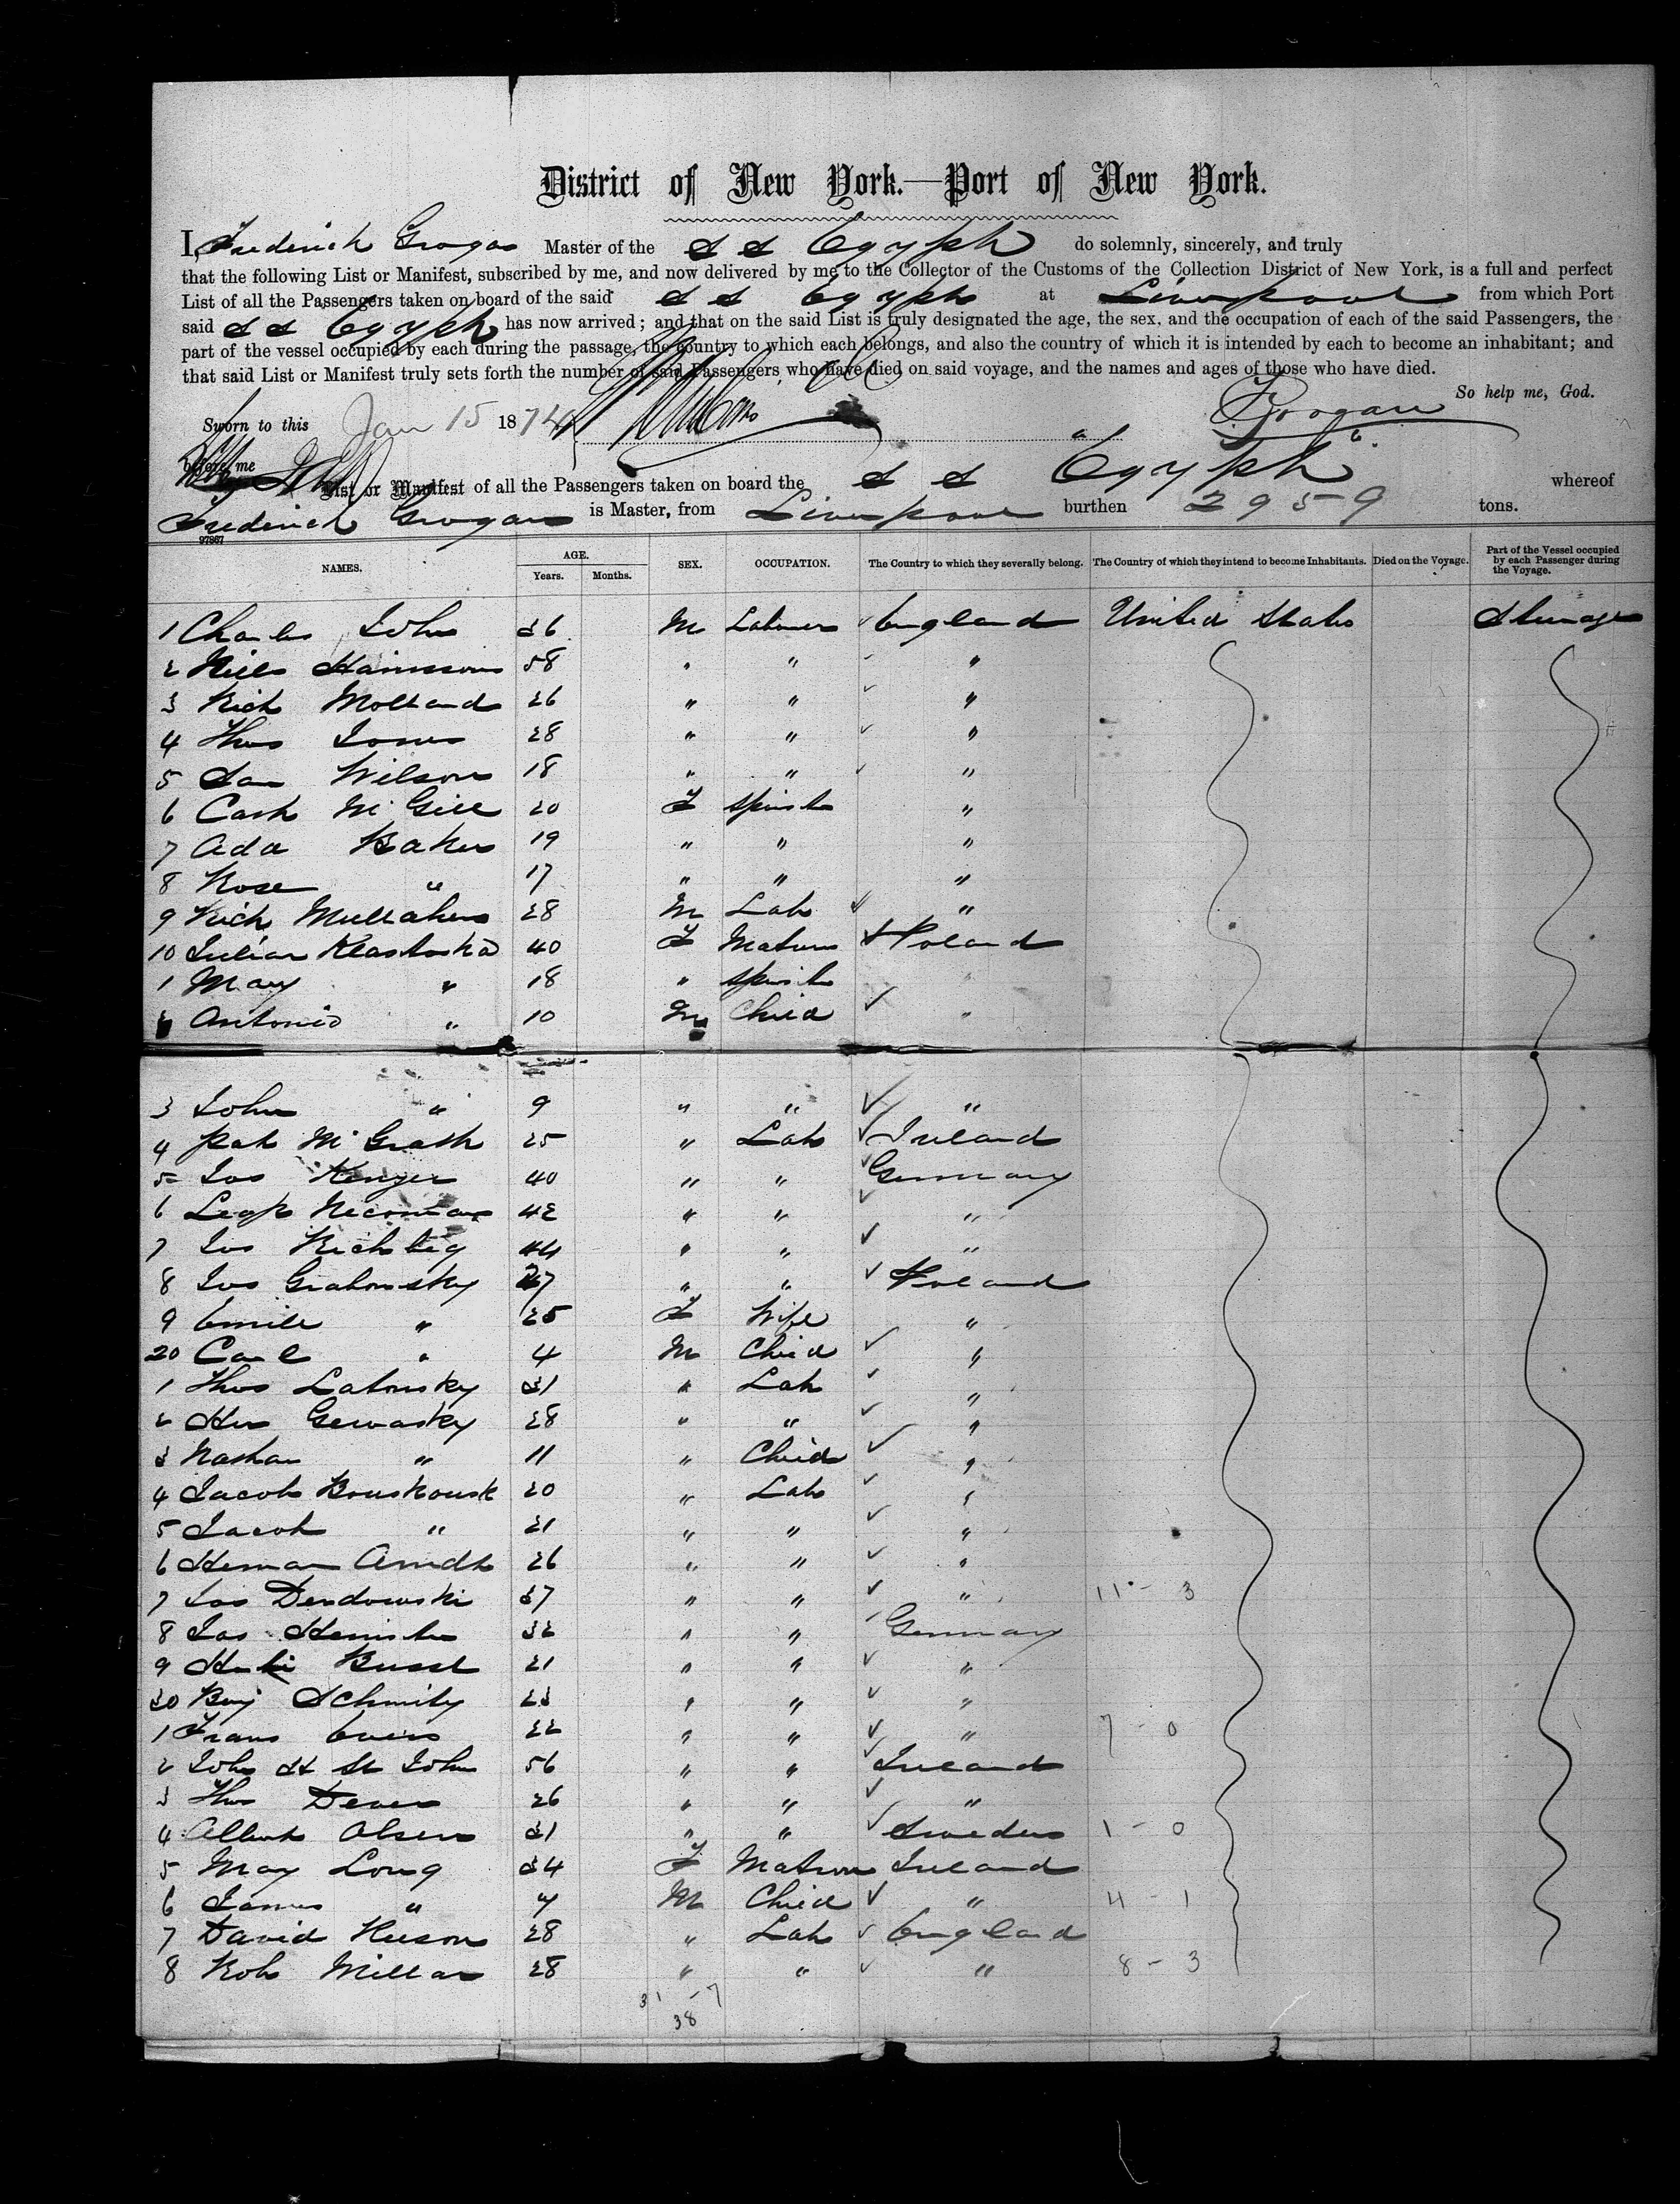 District of New York.—Port of New York.
I, Frederick Grogan Master of the S S Egypt do solemnly, sincerely, and truly
that the following List or Manifest, subscribed by me, and now delivered by me to the Collector of the Customs of the Collection District of New York, is a full and perfect
List of all the Passengers taken on board of the said S S Egypt at Liverpool from which Port
said S S Egypt has now arrived; and that on the said List is truly designated the age, the sex, and the occupation of each of the said Passengers, the
part of the vessel occupied by each during the passage, the country to which each belongs, and also the country of which it is intended by each to become an inhabitant; and
that said List or Manifest truly sets forth the number of said Passengers who have died on said voyage, and the names and ages of those who have died.
So help me, God.
Sworn to this Jan 15 1874 FGrogan
before me
List or Manifest of all the Passengers taken on board the S S Egypt whereof
Frederick Grogan is Master, from Liverpool burthen 2959 tons.
97867
NAMES. AGE. Years. Months. SEX. OCCUPATION. The Country to which they severally belong. The Country of which they intend to become Inhabitants. Died on the Voyage. Part of the Vessel occupied by each Passenger during the Voyage.
1 Charles John 36 M Labourer England United States Steerage
2 Niels 58 " " "
3 Rich Molland 26 " " "
4 Thos Jones 28 " " "
5 Sam Wilson 18 " " "
6 Cath McGill 20 F Spinster "
7 Ada Baker 19 " " "
8 Rose " 17 " " "
9 Rich Mullahen 28 M Lab "
10 Julian 40 F Matron Poland
1 Mary " 18 " Spinster "
2 Antonio " 10 M Child "
3 John " 9 " " "
4 Pat McGrath 25 " Lab Ireland
5 Jos Kenzer 40 " " Germany
6 Leop 42 " " "
7 Jos Richsteig 44 " " "
8 Jos Grabowsky 27 " " Poland
9 Emile " 25 F Wife "
20 Carl " 4 M Child "
1 Thos Latonsky 31 " Lab "
2 Her Gewasky 28 " " "
3 Nathan " 11 " Child "
4 Jacob 20 " Lab "
5 Jacob " 21 " " "
6 Herman Arndt 26 " " "
7 Jos Dendowski 37 " " " 11 - 3
8 Jos 32 " " Germany
9 21 " " "
30 Benj Schmity 23 " " "
1 Frans Evers 22 " " " 7 - 0
2 John H St John 56 " " Ireland
3 Thos Dever 26 " " "
4 Albert Olsen 31 " " Sweden 1 - 0
5 Mary Long 34 F Matron Ireland
6 James " 7 M Child " 4 - 1
7 David Hueson 28 " Lab England
8 Rob Millar 28 " " " 8 - 3
31 - 7
38